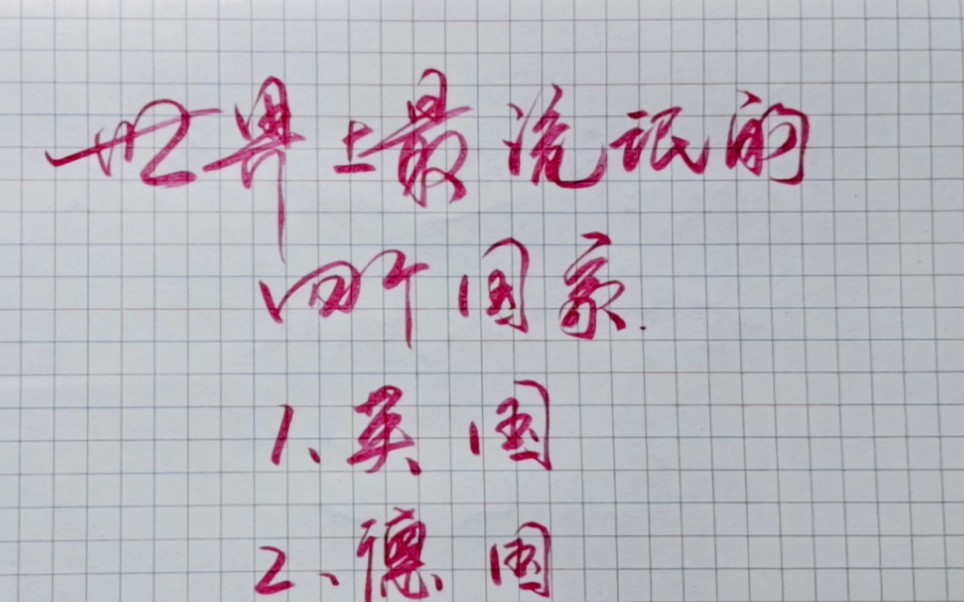 世界上最流氓的
四个国家.
1、英国
2、德国